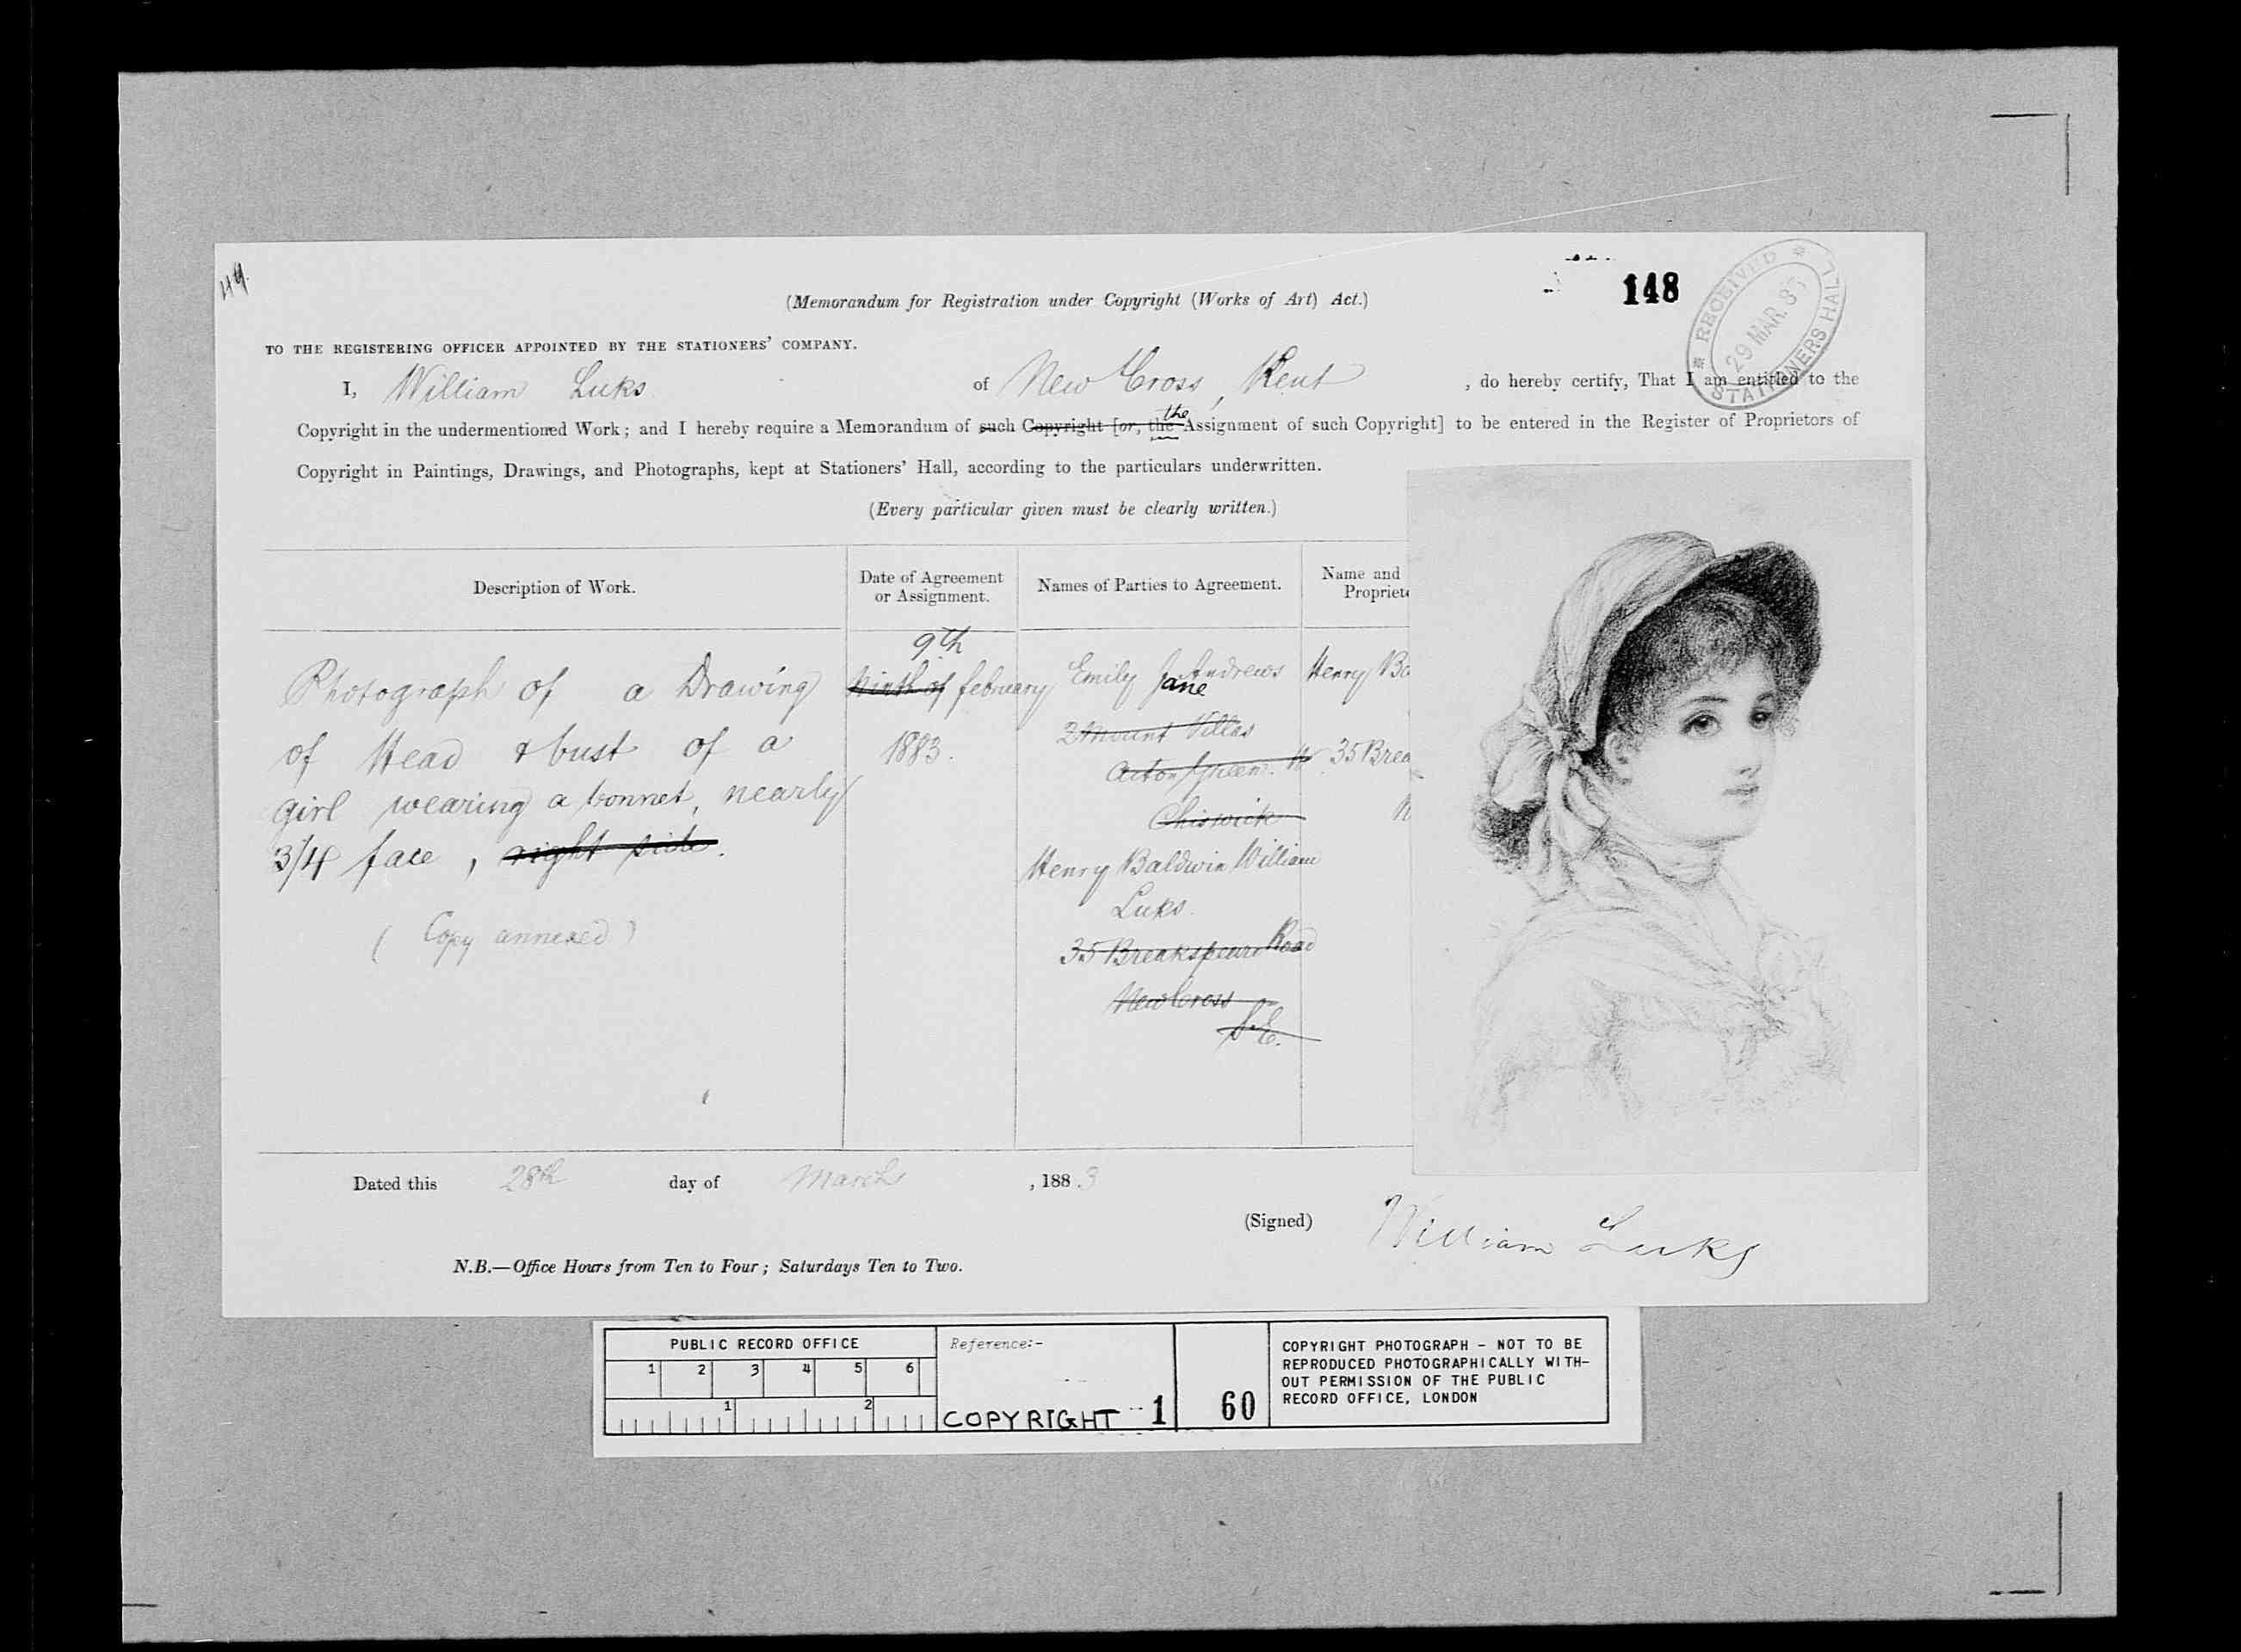 44.
(Memorandum for Registration under Copyright (Works of Art) Act.)
148
RECEIVED 29 MAR. 83 STATIONERS HALL
TO THE REGISTERING OFFICER APPOINTED BY THE STATIONERS' COMPANY.
I, William Luks of New Cross, Kent , do hereby certify, That I am entitled to the
the
Copyright in the undermentioned Work; and I hereby require a Memorandum of such Copyright [or, the Assignment of such Copyright] to be entered in the Register of Proprietors of
Copyright in Paintings, Drawings, and Photographs, kept at Stationers' Hall, according to the particulars underwritten.
(Every particular given must be clearly written.)
Description of Work.
Photograph of a Drawing
of Head & bust of a
girl wearing a bonnet, nearly
3/4 face, right side.
(Copy annexed)
Date of Agreement
or Assignment.
9th
Ninth of february
1883.
Names of Parties to Agreement.
Emily Jane Andrews
2 Mount Villas
Acton Green. W
Chiswick
Henry Baldwin William
Luks.
35 Breakspeare Road
New Cross
S.E.
Name and
Propriet
Henry Ba
35 Brea
N
Dated this 28th day of March , 1883
(Signed) William Luks
N.B.—Office Hours from Ten to Four; Saturdays Ten to Two.
PUBLIC RECORD OFFICE
1 2 3 4 5 6
1 2
Reference:-
COPYRIGHT 1
60
COPYRIGHT PHOTOGRAPH - NOT TO BE
REPRODUCED PHOTOGRAPHICALLY WITH-
OUT PERMISSION OF THE PUBLIC
RECORD OFFICE, LONDON